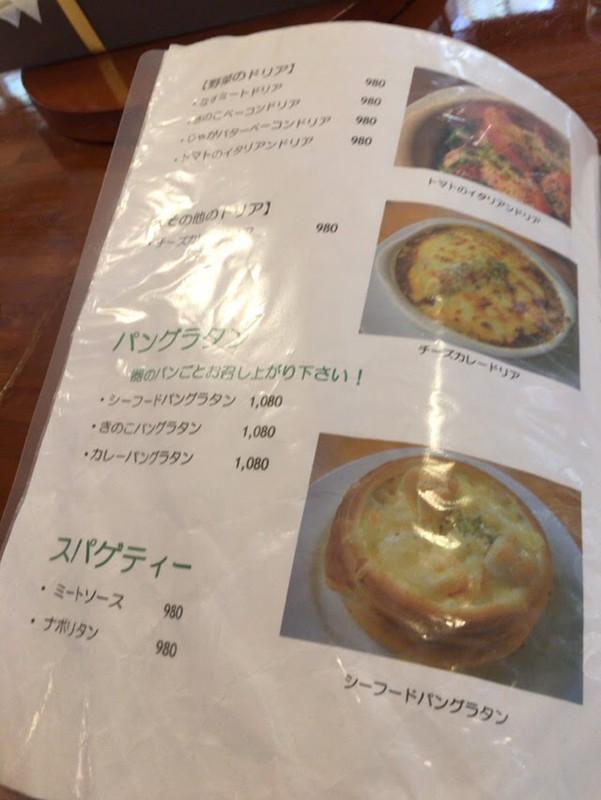 【野菜のドリア】
・なすミートドリア 980
・きのこベーコンドリア 980
・じゃがバターベーコンドリア 980
・トマトのイタリアンドリア 980
トマトのイタリアンドリア
【その他のドリア】
・チーズカレードリア 980
チーズカレードリア
パングラタン
器のパンごとお召し上がり下さい！
・シーフードパングラタン 1,080
・きのこパングラタン 1,080
・カレーパングラタン 1,080
スパゲティー
・ミートソース 980
・ナポリタン 980
シーフードパングラタン